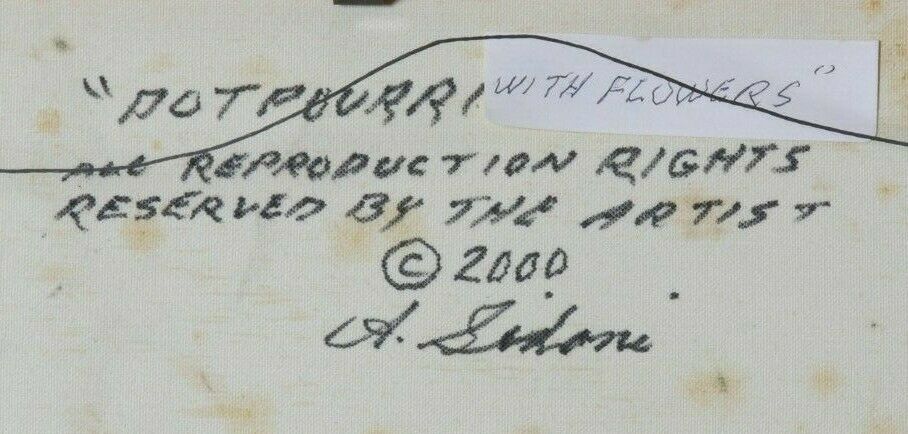 "POTPOURRI WITH FLOWERS"
ALL REPRODUCTION RIGHTS
RESERVED BY THE ARTIST
© 2000
A. Sidoni